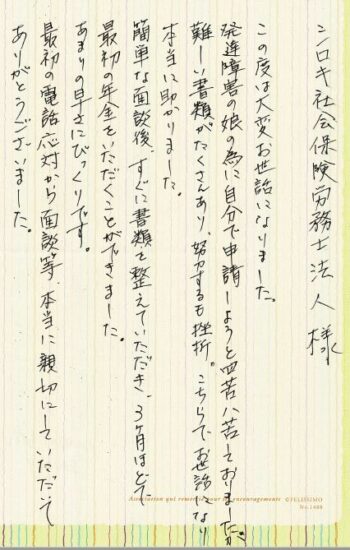 シロキ社会保険労務士法人 様
この度は大変お世話になりました。
発達障害の娘の為に自分で申請しようと四苦八苦しておりましたが
難しい書類がたくさんあり、努力するも挫折。こちらでお世話になり
本当に助かりました。
簡単な面談後、すぐに書類を整えていただき、3ヶ月ほどで
最初の年金をいただくことができました。
あまりの早さにびっくりです。
最初の電話応対から面談等、本当に親切にしていただいて
ありがとうございました。
©FELISSIMO